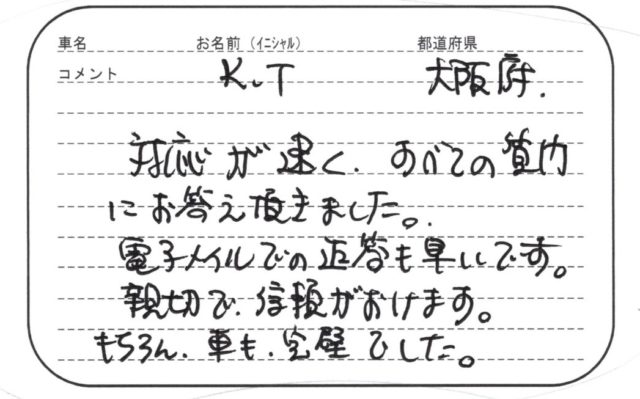 車名 お名前（ｲﾆｼｬﾙ） 都道府県
コメント K.T 大阪府.
対応が速く、すべての質問
にお答え頂きました。
電子メイルでの返答も早いです。
親切で、信頼がおけます。
もちろん、車も、完璧でした。